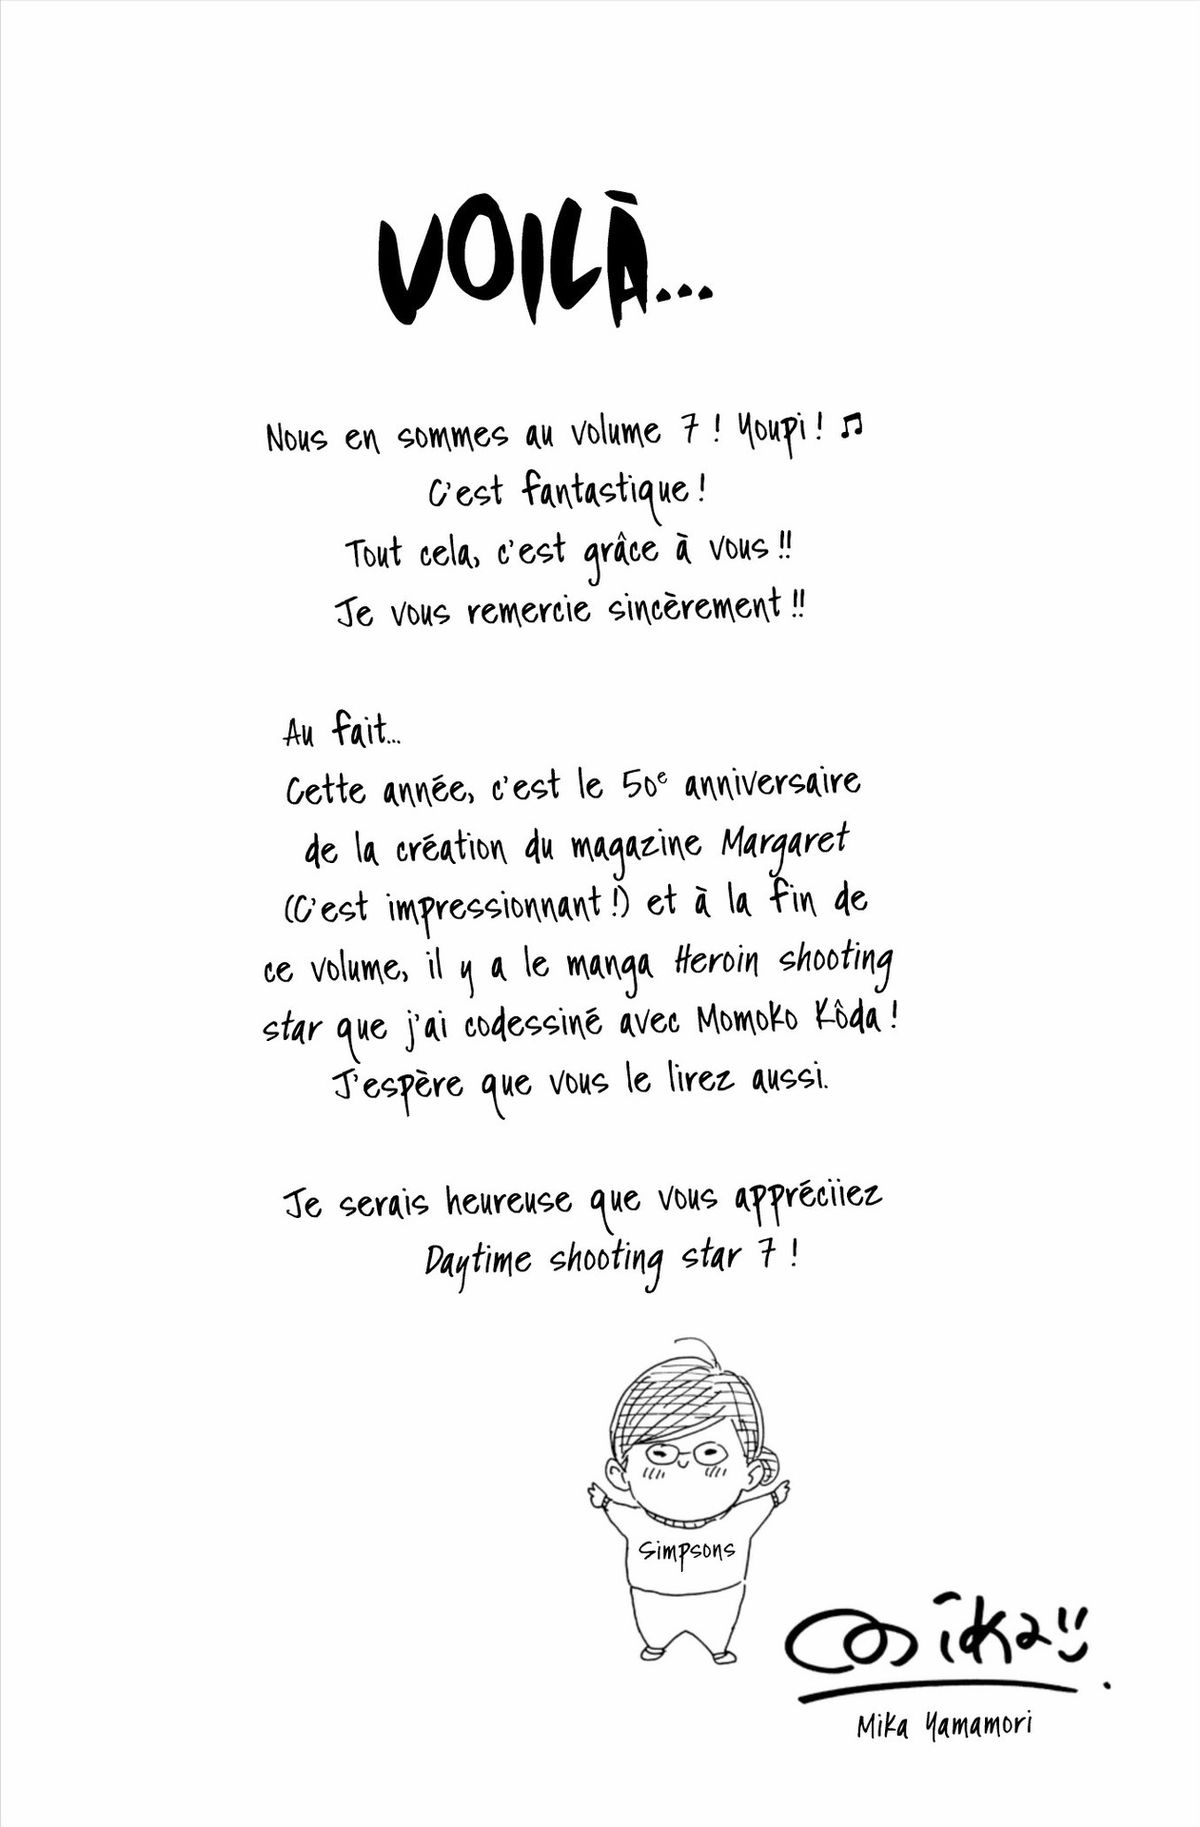 VOILÀ...
Nous en sommes au volume 7 ! Youpi ! ♫
C'est fantastique !
Tout cela, c'est grâce à vous !!
Je vous remercie sincèrement !!
Au fait...
Cette année, c'est le 50e anniversaire
de la création du magazine Margaret
(C'est impressionnant !) et à la fin de
ce volume, il y a le manga Heroin shooting
star que j'ai codessiné avec Momoko Kôda !
J'espère que vous le lirez aussi.
Je serais heureuse que vous appréciiez
Daytime shooting star 7 !
Simpsons
Mika
Mika Yamamori